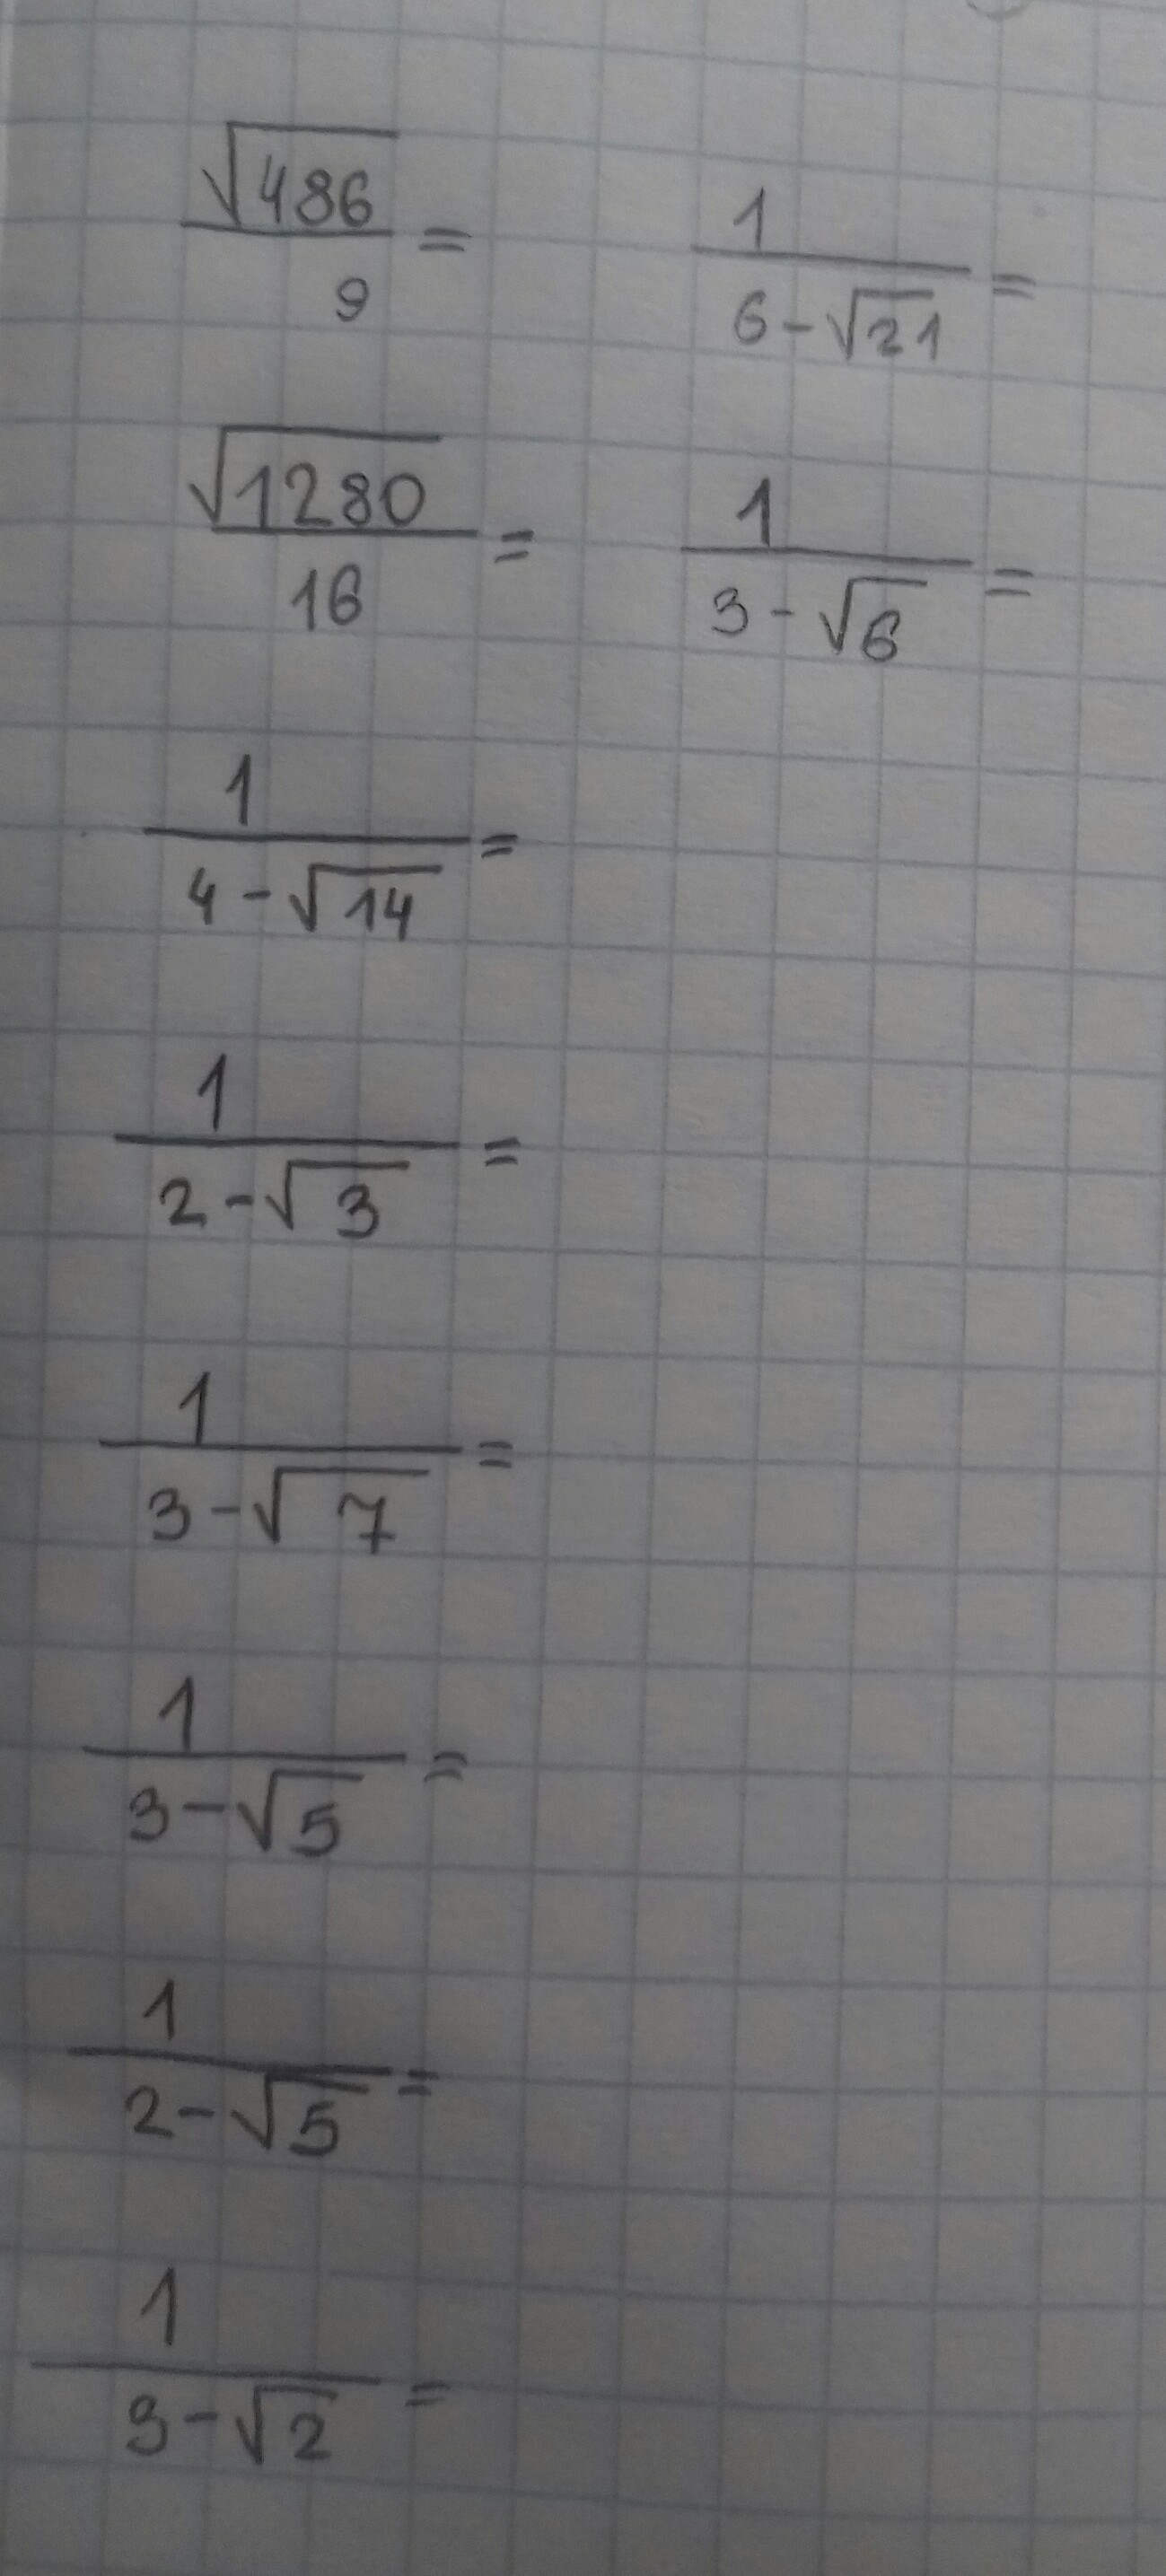 √486/9 =
1/(6-√21) =
√1280/16 =
1/(3-√6) =
1/(4-√14) =
1/(2-√3) =
1/(3-√7) =
1/(3-√5) =
1/(2-√5) =
1/(3-√2) =